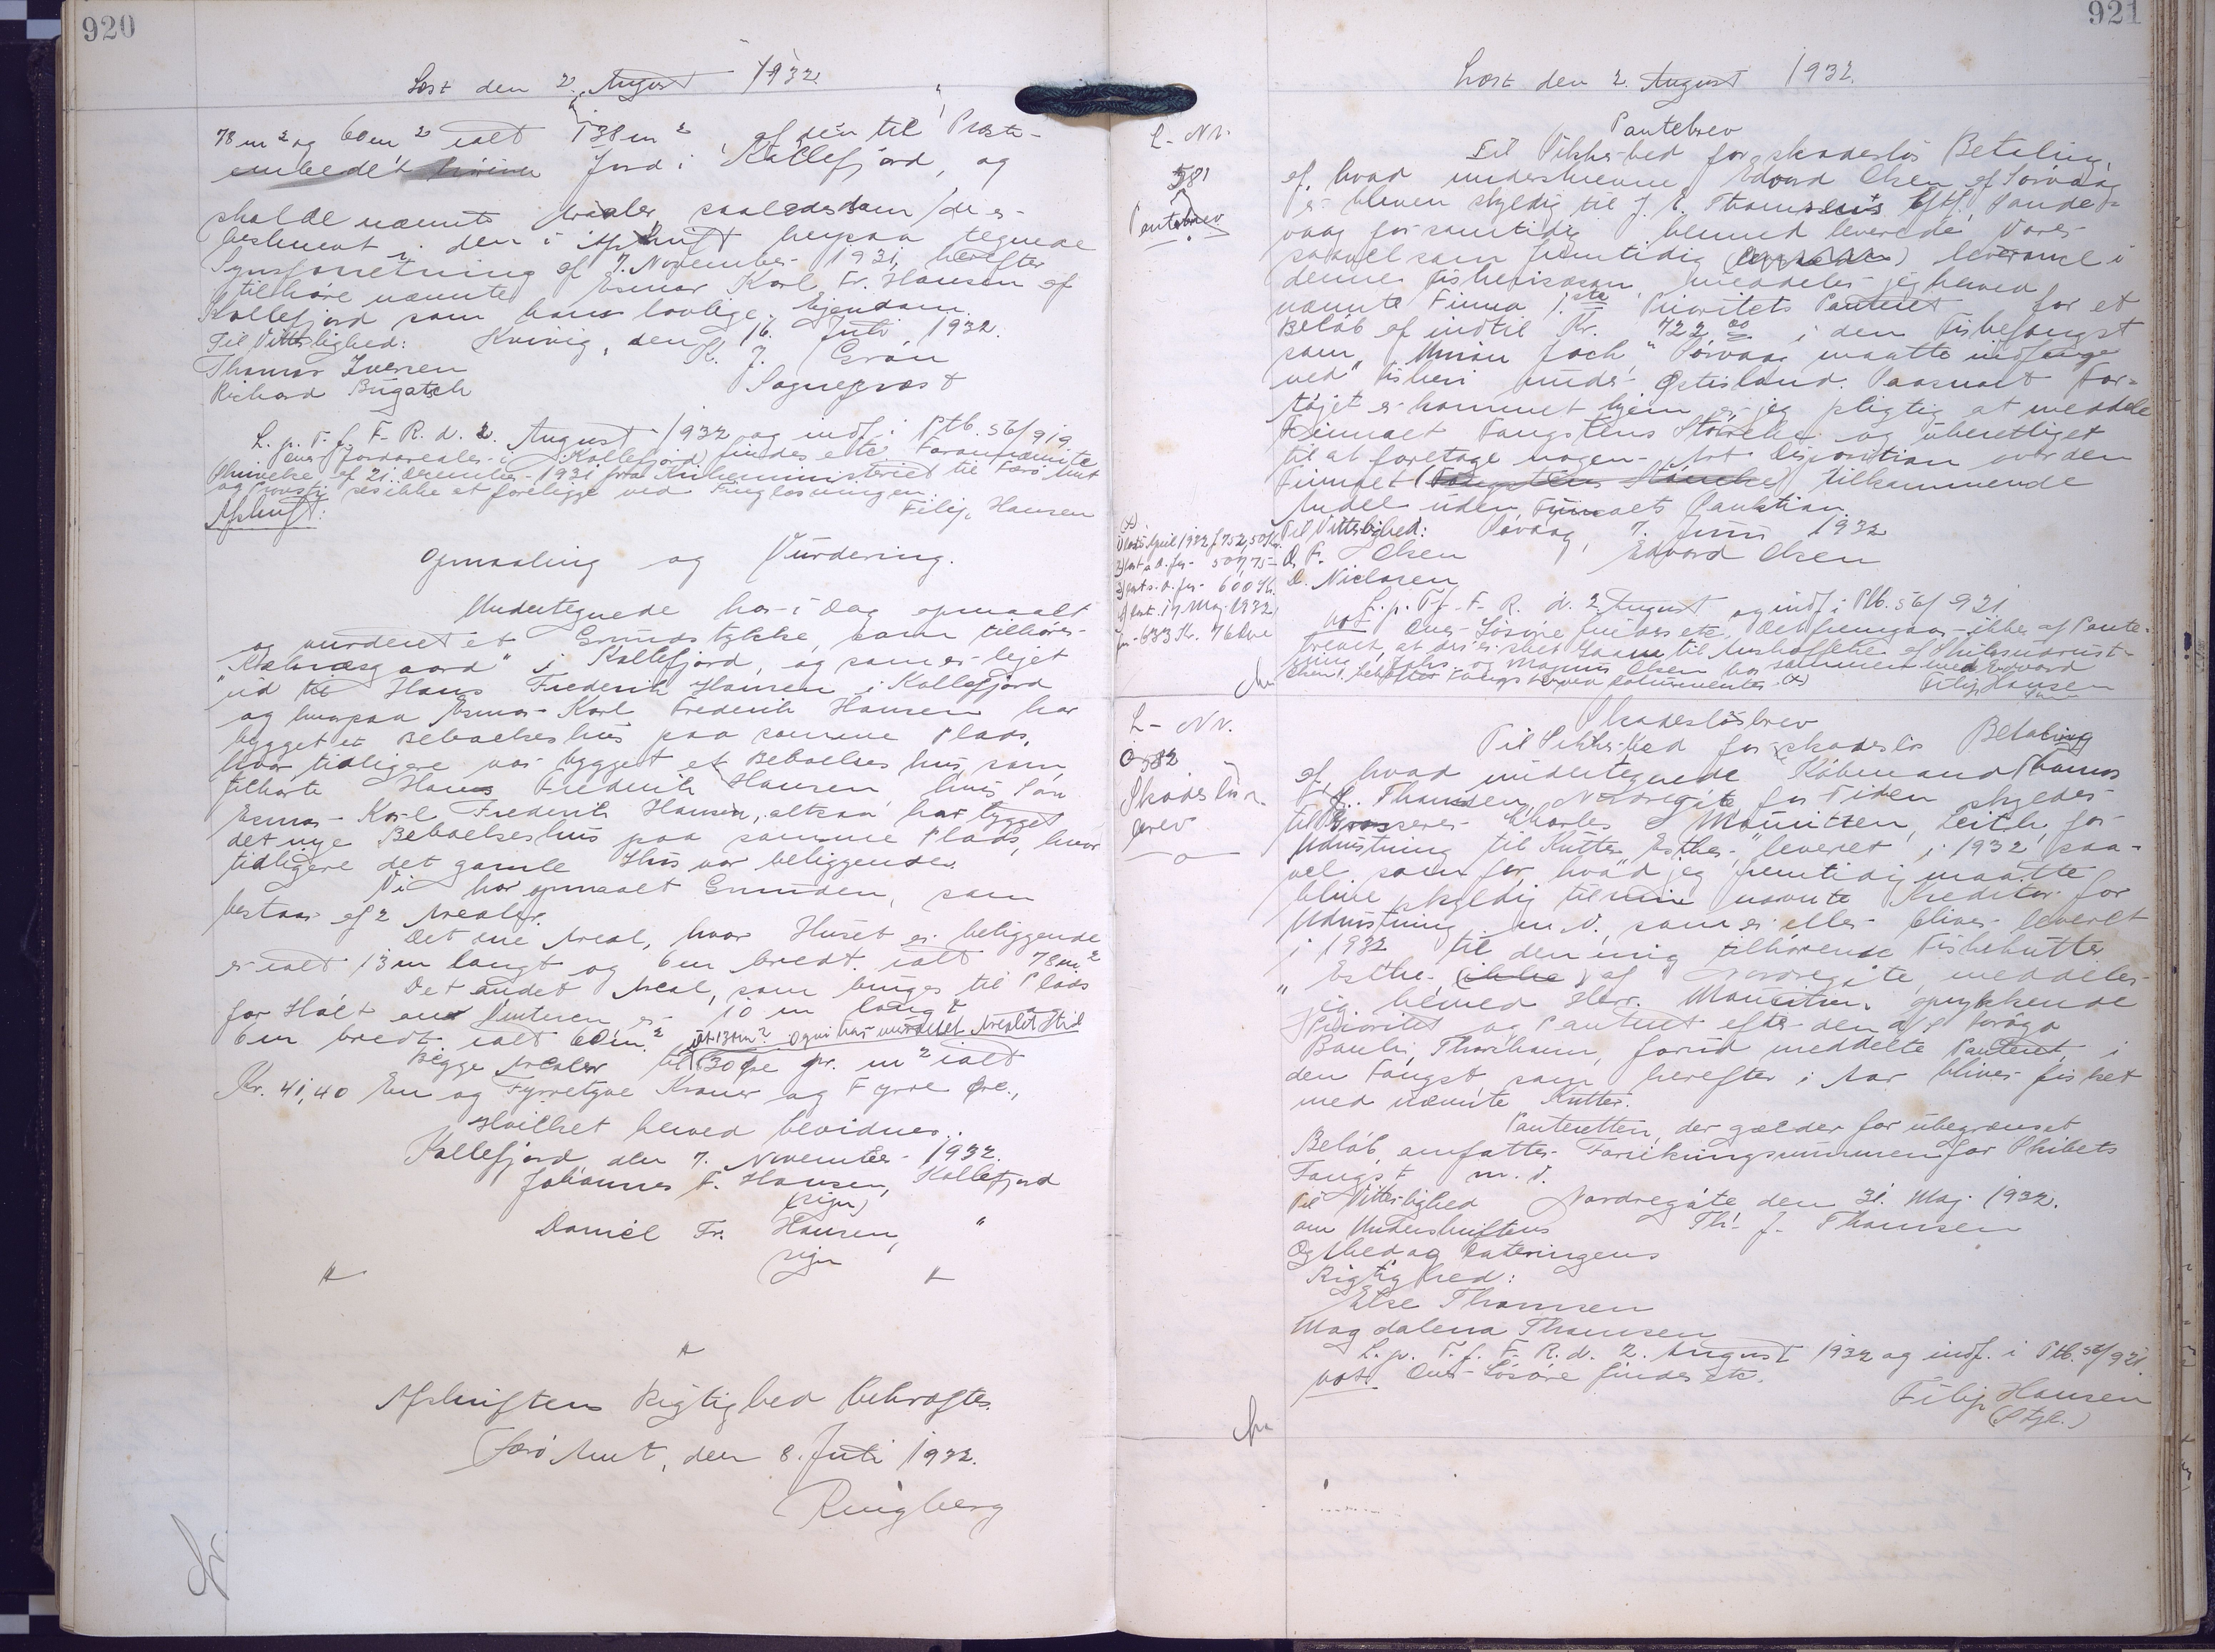 920
Læst den 2. August 1932.
78 m² og 60 m² ialt 138 m² af den til Præste-
embedet hørende Jord i Kollefjord, og
skal de nævnte Arealer, saaledes som de er
beskrevet i den i Afskrift herpaa tegnede
Synsforretning af 7. November 1931, herefter
tilhøre nævnte Esmar Karl Fr. Hansen af
Kollefjord som hans lovlige Ejendom.
Til Vitterlighed: Kvivig, den 16. Juli 1932.
Thomas Iversen K. J. Grøn
Richard Sognepræst
L. p. T. f. F. R. d. 2. August 1932 og indf. i Ptb. 56/919
over Jordarealer i Kollefjord findes ette. Foran nævnte
Skrivelse af 21. December 1931 fra Kirkeministeriet til Færø Amt
og Provsti ses ikke at foreligge ved Tinglæsningen.
Afskrift: Filip Hansen
Opmaaling og Vurdering.
Undertegnede har i Dag opmaalt
og vurderet et Grundstykke, som tilhører
i Kollefjord, og som er lejet
ud til Hans Frederik Hansen i Kollefjord
og hvorpaa Esmar Karl Frederik Hansen har
bygget et Beboelseshus paa samme Plads,
hvor tidligere var bygget et Beboelseshus, som
tilhørte Hans Frederik Hansen hvis Søn
Esmar Karl Frederik Hansen, altsaa har bygget
det nye Beboelseshus paa samme Plads, hvor
tidligere det gamle Hus var beliggende.
Vi har opmaalt Grunden, som
bestaar af 2 Arealer.
Det ene Areal, hvor Huset er beliggende
er ialt 13 m langt og 6 m bredt ialt 78 m²
Det andet Areal, som bruges til Plads
for om Vinteren er 10 m langt og
6 m bredt ialt 60 m² Ogvi har vurderet Arealet
Begge Arealer til 30 Øre pr. m² ialt
Kr. 41,40 En og Fyrretyve Kroner og Fyrre Øre.,
Hvilket herved bevidnes.
Kollefjord den 7. November 1932.
Johannes F. Hansen, Kollefjord
(sign)
Daniel Fr. Hansen, "
sign
Afskriftens Rigtighed bekræftes.
Færø Amt, den 8. Juli 1932.
Ringberg
921
Læst den 2. August 1932.
L- Nr.
581
Pantebrev
Pantebrev
Til Sikkerhed for skadesløs Betaling
af, hvad underskrevne Edvard Olsen af Sørvaag
er bleven skyldig til J. E. Thomsens Eftf. Sande-
vaag for samtidig hermed leverede Varer
saavel som fremtidig leverance i
denne Fiskerisæson, meddeler jeg herved
nævnte Firma 1ste Prioritets Panteret for et
Beløb af indtil Kr. 722 00 i den Fiskefangst
som "Union Jack" Sørvaag maatte indfange
ved Fiskeri under Østisland. Saasnart Far-
tøjet er kommet hjem er jeg pligtig at meddele
Firmaet Fangstens Størrelse og uberettiget
til at foretage nogen Art Disposition over den
Firmaet (Fangstens Størrelse) tilkommende
Andel uden Firmaets Sanktion.
Til Vitterlighed: Sørvaag, 7. Juni 1932
Olsen Edvard Olsen
D. Niclasen
L. p. T. f. F. R. d. 2. August og indf. i Ptb. 56/921
not. Over Løsøre findes ette. Det fremgaar ikke af Pante-
brevet, at der er sket Laan til Anskaffelse af Skibsudrust-
ning og Magnus Olsen har sammen med Edvard
Olsen behæftet Fangst (x)
Filip Hansen
(x)
1) April 1932 f. 752,50 Kr.
2) 507,75
3) 600 Kr.
4) 17 Maj 1932
633 Kr. 76 Øre
L- Nr.
582
Skadesløs-
brev
Skadesløsbrev
Til Sikkerhed for skadesløs Betaling
af, hvad undertegnede Købmand Thomas
J. Thomsen, Nordregøte for Tiden skylder
til Grosserer Charles Mouritzen, Leith for
Udrustning til Kutter "Esther" leveret i 1932 saa-
vel som for, hvad jeg fremtidig maatte
blive skyldig til min nævnte Kreditor for
Udrustning m. v. som er eller bliver leveret
i 1932 til den mig tilhørende Fiskekutter
"Esther" af Nordregøte, meddeler
jeg herved Herr. Mouritzen oprykkende
Prioritet og Panteret efter den A/S Føroya
Banki, Thorshavn, forud meddelte Panteret, i
den Fangst som herefter i Aar bliver fisket
med nævnte Kutter.
Panteretten, der gælder for ubegrænset
Beløb, omfatter Forsikringssummen for Skibets
Fangst m. v.
Til Vitterlighed Nordregøte den 31. Maj 1932.
om Underskriftens Th. J. Thomsen
Ægthed og Dateringens
Rigtighed:
Else Thomsen
Magdalena Thomsen
L. p. T. f. F. R. d. 2. August 1932 og indf. i Ptb. 56/921
not. Over Løsøre findes ette.
Filip Hansen